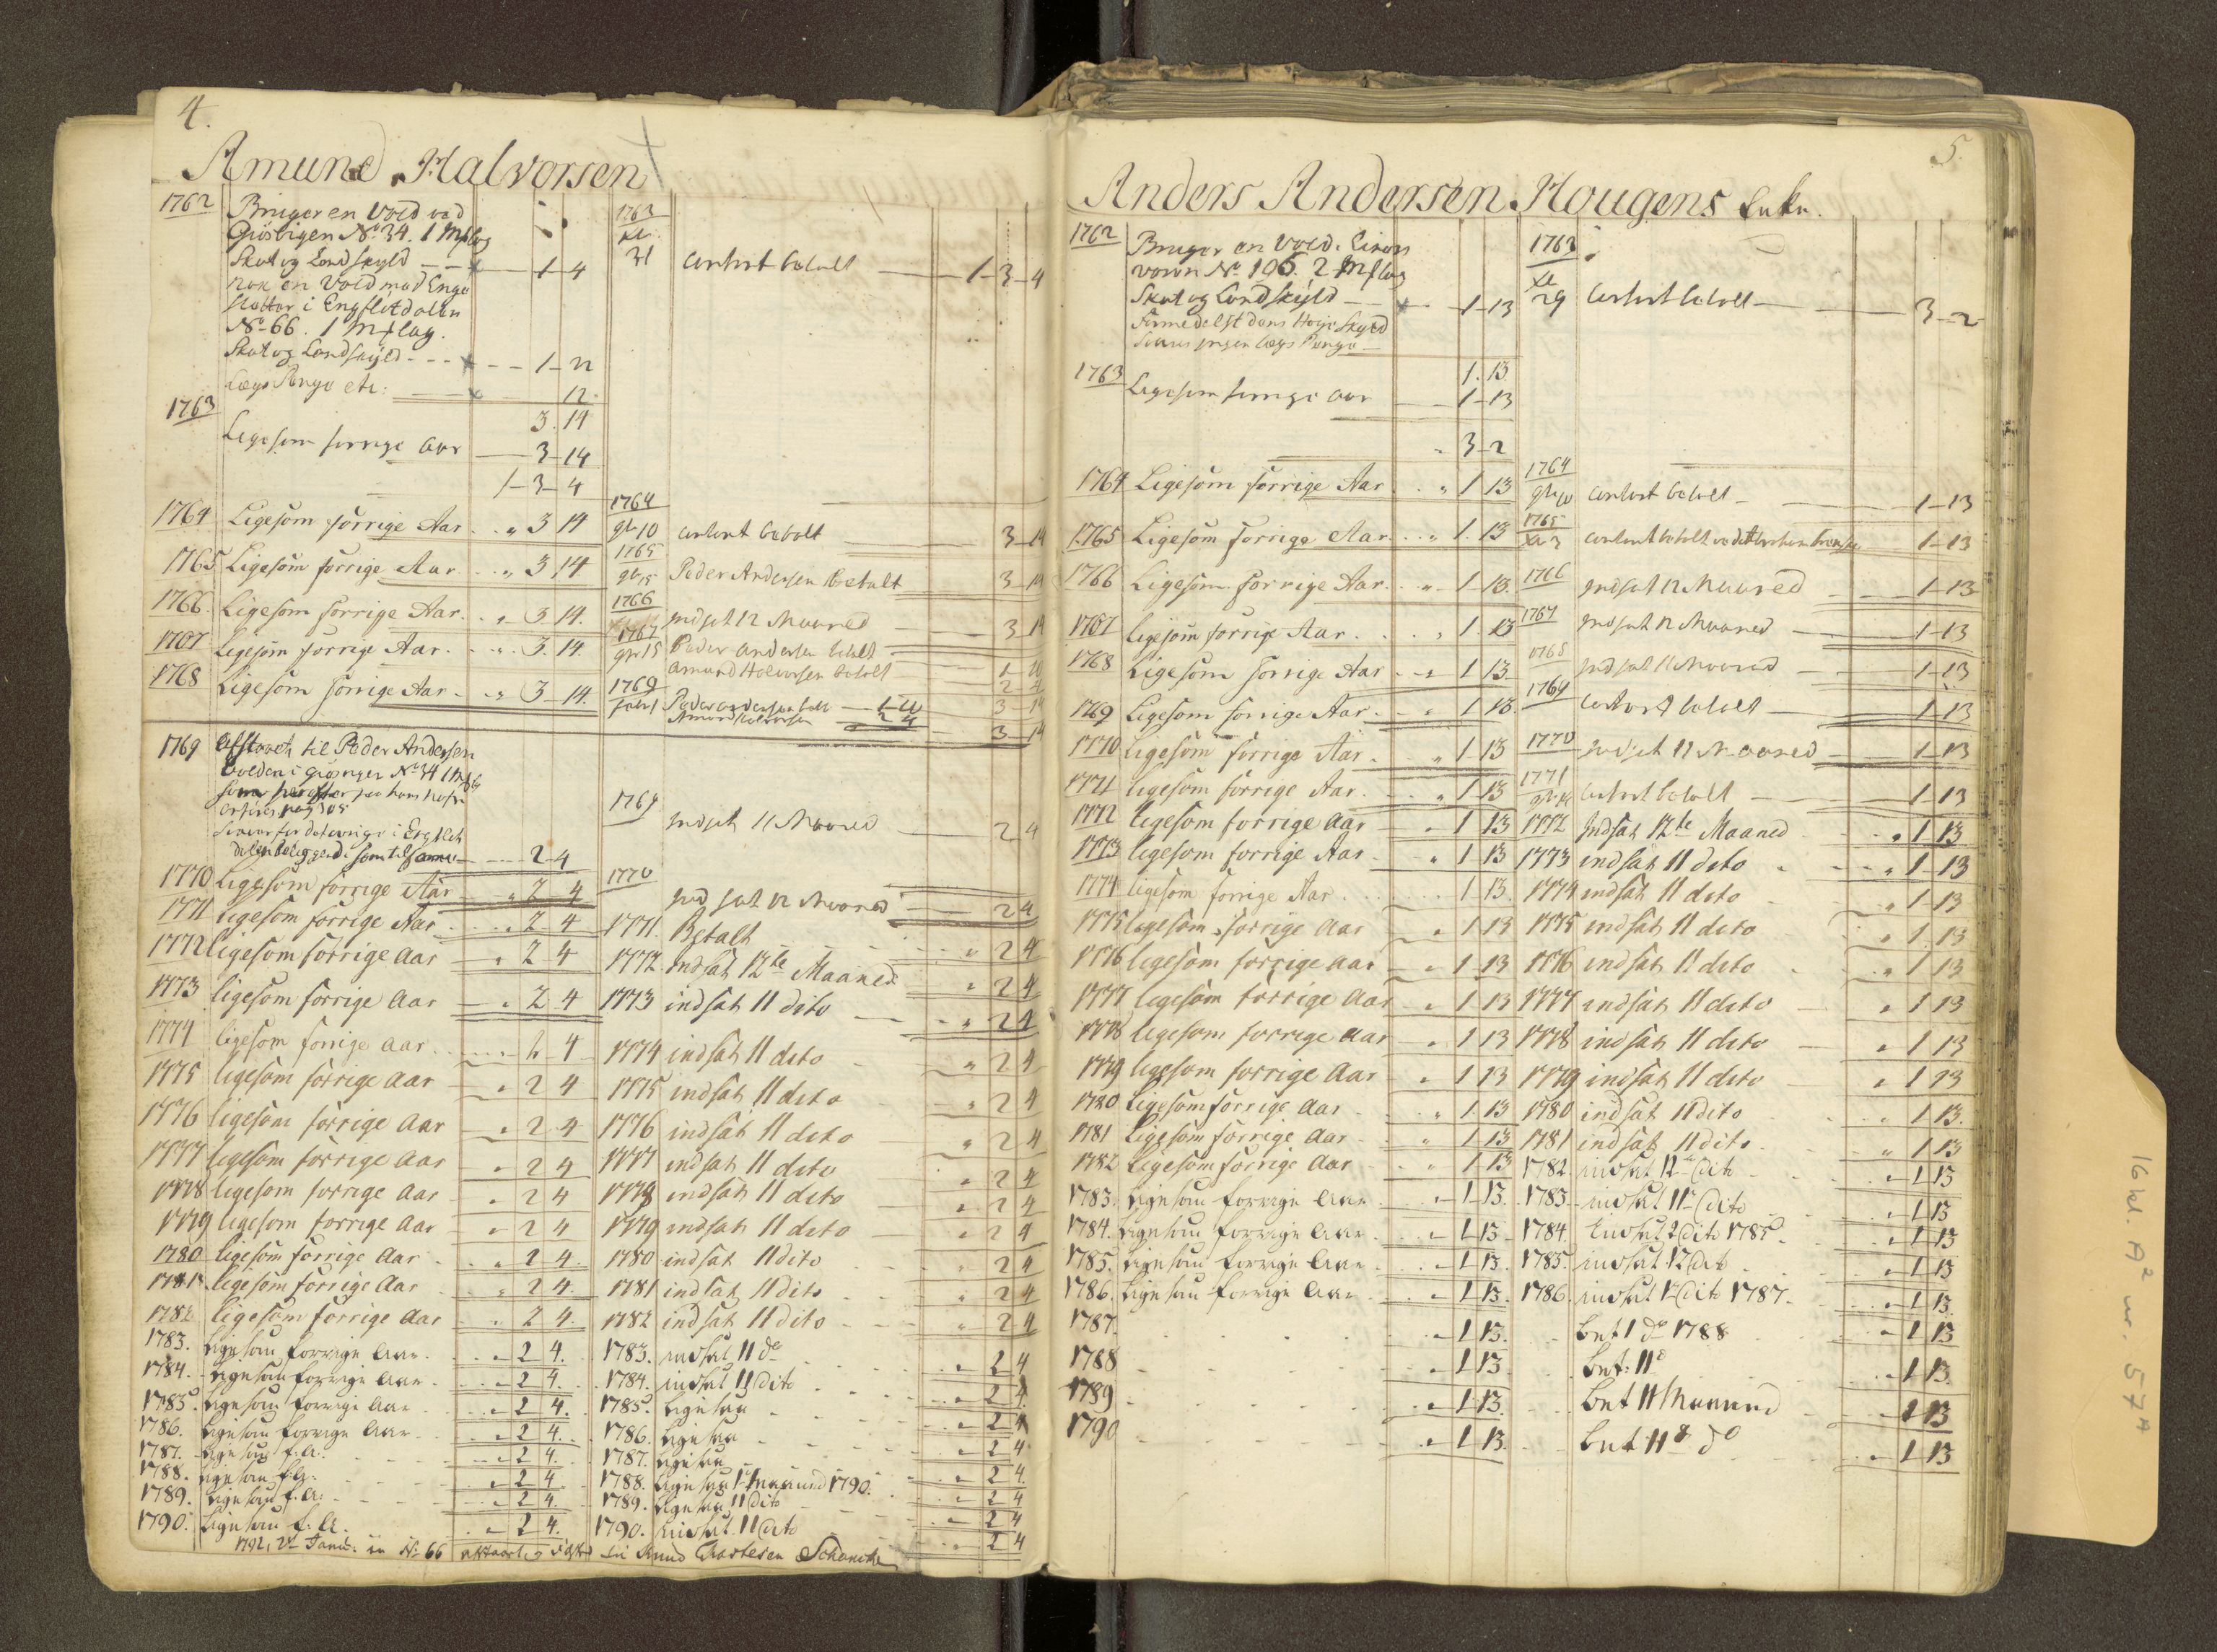 4.
Amund Halvorsen
1762 Bruger en Vold ved
Giösvigen No. 34. 1 Mslag
Skat og Landskyld - - 1 - 4
nok en Vold med Enge
Slotter i Engslitdalen
No. 66. 1 Mslag.
Skat og Landskyld - - - 1 - 22
Lægs Penge etc: 12.
3. 14
1763 Ligesom forrige Aar 3 - 14
1 - 3 - 4
1764 Ligesom forrige Aar . . " 3 14
1765 Ligesom forrige Aar . . " 3 14
1766. Ligesom forrige Aar. . " 3. 14.
1767 Ligesom forrige Aar. . " 3. 14.
1768 Ligesom forrige Aar - " 3 - 14.
1769 Afstaaet til Peder Andersen
Volden i Giösvigen No. 34 1 Mslag
som herefter paa hans Nafn
anföres pag 105
Svarer for det övrige i Engslet
dalen beliggende som til forn 2 - 4
1770 Ligesom forrige Aar " 2 4
1771 ligesom forrige Aar 2 4
1772 ligesom forrige Aar " 2 4
1773 ligesom forrige Aar " 2 4
1774 ligesom forrige Aar 2 - 4
1775 ligesom forrige Aar " 2 4
1776 ligesom forrige Aar " 2 4
1777 ligesom forrige Aar " 2 4
1778 ligesom forrige Aar " 2 4
1779 ligesom forrige Aar " 2 4
1780 ligesom forrige Aar " 2 4.
1781 ligesom forrige Aar " 2 4.
1782 ligesom forrige Aar " 2 4.
1783. ligesom forrige Aar. " 2 4.
1784. ligesom forrige Aar. " 2 4.
1785. ligesom forrige Aar " 2 4.
1786. ligesom forrige Aar " 2 4.
1787. ligesom f. A. " 2 4.
1788. ligesom f. A. " 2 4
1789. ligesom f. A. " 2 4.
1790. ligesom f. A. " 2 4.
1792, No 66 Knud Carstesen Schancke
1763
31 contant betalt 1 - 3 - 4
1764
10 contant betalt 3 - 14
1765
15 Peder Andersen betalt 3 - 14
1766
indsat 12 Maaned 3 14
1767
15 Peder Andersen betalt 1 - 10
Amund Halvorsen betalt 2 - 4
3 - 14
1769
Peder Andersen bet 1 - 10
Amund Halvorsen 2 4
3 - 14
1769 indsat 11 Maaned 2 4
1770 indsat 12 Maaned 2 4
1771. Betalt " 2 4
1772 indsat 12te Maaned " 2 4
1773 indsat 11 dito " 2 4
1774 indsat 11 dito " 2 4
1775 indsat 11 dito " 2 4
1776 indsat 11 dito " 2 4
1777 indsat 11 dito " 2 4
1778 indsat 11 dito " 2 4
1779 indsat 11 dito " 2 4
1780 indsat 11 dito " 2 4
1781 indsat 11 dito " 2 4
1782 indsat 11 dito " 2 4
1783. indsat 11 do " 2 4
1784. indsat 11 dito " 2 4
1785. ligesaa " 2 4
1786. ligesaa " 2 4
1787. ligesaa " 2 4.
1788. ligesaa 1 Maaned 1790. " 2 4
1789. ligesaa 11 dito " 2 4
1790. indsat. 11 dito " 2 4
5.
Anders Andersen Hougens Enke.
1762 Bruger en Vold
No. 106. 2 Mslag
Skat og Landskyld 1 - 13
formedelst dens Höye Skyld
svares ingen Lægs Penge
1. 13
1763 Ligesom forrige Aar 1 - 13
" 3 - 2
1764 Ligesom forrige Aar . . " 1 13
1765 Ligesom forrige Aar . . " 1. 13
1766 Ligesom forrige Aar . " 1 - 13.
1767 Ligesom forrige Aar . . " 1. 13
1768 Ligesom forrige Aar " 1 13
1769 Ligesom forrige Aar . " 1 13.
1770 ligesom forrige Aar . " 1 13
1771 ligesom forrige Aar . " 1 13
1772 ligesom forrige Aar " 1 13
1773 ligesom forrige Aar " 1 13
1774 ligesom forrige Aar . 1 13.
1775 ligesom forrige Aar " 1 13
1776 ligesom forrige Aar " 1 13
1777 ligesom forrige Aar " 1 13
1778 ligesom forrige Aar " 1 13
1779 ligesom forrige Aar " 1 13
1780 ligesom forrige Aar " 1. 13
1781 ligesom forrige Aar " 1 13
1782 ligesom forrige Aar " 1 13
1783. ligesom forrige Aar " 1 13.
1784. ligesom forrige Aar " 1 13
1785. ligesom forrige Aar " 1 13.
1786. ligesom forrige Aar " 1 13.
1787. " 1 13.
1788 " 1 13
1789 " 1 13.
1790 " 1 13.
1763
29 Contant betalt 3 - 2
1764
contant betalt 1 - 13
1765
contant betalt 1 - 13
1766 indsat 12 Maaned 1 - 13
1767 indsat 12 Maaned 1 - 13
1768 indsat 11 Maaned 1 - 13
1769 contant betalt 1 13
1770 indsat 11 Maaned 1 - 13
1771 contant betalt 1 - 13
1772 indsat 12te Maaned " 1 13
1773 indsat 11 dito " 1 - 13
1774 indsat 11 dito " 1 - 13
1775 indsat 11 dito " 1 13
1776 indsat 11 dito " 1 13
1777 indsat 11 dito " 1 13
1778 indsat 11 dito " 1 13
1779 indsat 11 dito " 1 13
1780 indsat 11 dito " 1 13.
1781 indsat 11 dito " 1 13
1782. indsat 12 dito " 1 13
1783. indsat 11 dito " 1 13
1784. indsat 2 dito 1785. " 1 13
1785. indsat 12 dito " 1 13
1786. indsat 1 dito 1787. " 1 13.
bet 1 do 1788 " 1 13
bet: 11 " 1 13.
bet 11 Maaned " 1 13
bet 11 do " 1 13
16 kl. A² nr. 57ᴬ